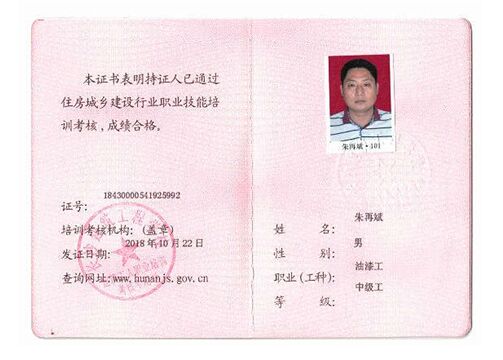 本证书表明持证人已通过
住房城乡建设行业职业技能培
训考核，成绩合格。
证号: 18430000541925992
培训考核机构: (盖章)
发证日期: 2018年10月22日
查询网址: www.hunanjs.gov.cn
朱再斌·401
姓 名: 朱再斌
性 别: 男
职业(工种): 油漆工
等 级: 中级工